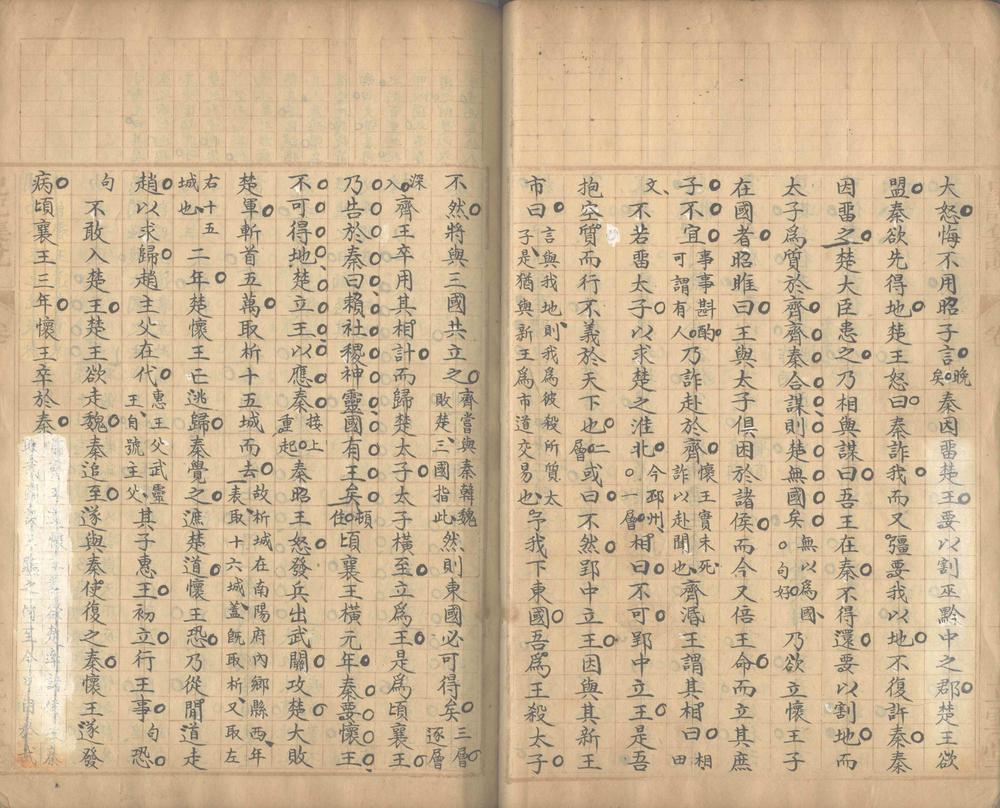 大怒悔不用昭子言晚矣秦因畱楚王要以割巫黔中之郡楚王欲
盟秦欲先得地楚王怒曰秦詐我而又彊要我以地不復許秦秦
因畱之楚大臣患之乃相與謀曰吾王在秦不得還要以割地而
太子爲質於齊齊秦合謀則楚無國矣無以爲國句好乃欲立懷王子
在國者昭睢曰王與太子俱困於諸侯而今又倍王命而立其庶
子不宜事事斟酌可謂有人乃詐赴於齊懷王實未死詐以赴聞也齊湣王謂其相曰相田
文不若畱太子以求楚之淮北今邳州一層相曰不可郢中立王是吾
抱空質而行不義於天下也二層或曰不然郢中立王因與其新王
市曰言與我地則我爲彼殺所質太子是猶與新王爲市道交易也予我下東國吾爲王殺太子
不然將與三國共立之齊當與秦韓魏敗楚三國指此然則東國必可得矣三層逐層
深入齊王卒用其相計而歸楚太子太子橫至立爲王是爲頃襄王
乃告於秦曰賴社稷神靈國有王矣頓住頃襄王橫元年秦要懷王
不可得地楚立王以應秦接上重起秦昭王怒發兵出武關攻楚大敗
楚軍斬首五萬取析十五城而去故析城在南陽府內鄉縣西年表取十六城蓋旣取析又取左
右十五城也二年楚懷王亡逃歸秦覺之遮楚道懷王恐乃從閒道走
趙以求歸趙主父在代惠王父武靈王自號主父其子惠王初立行王事句恐
句不敢入楚王楚王欲走魏秦追至遂與秦使復之秦懷王遂發
病頃襄王三年懷王卒於秦